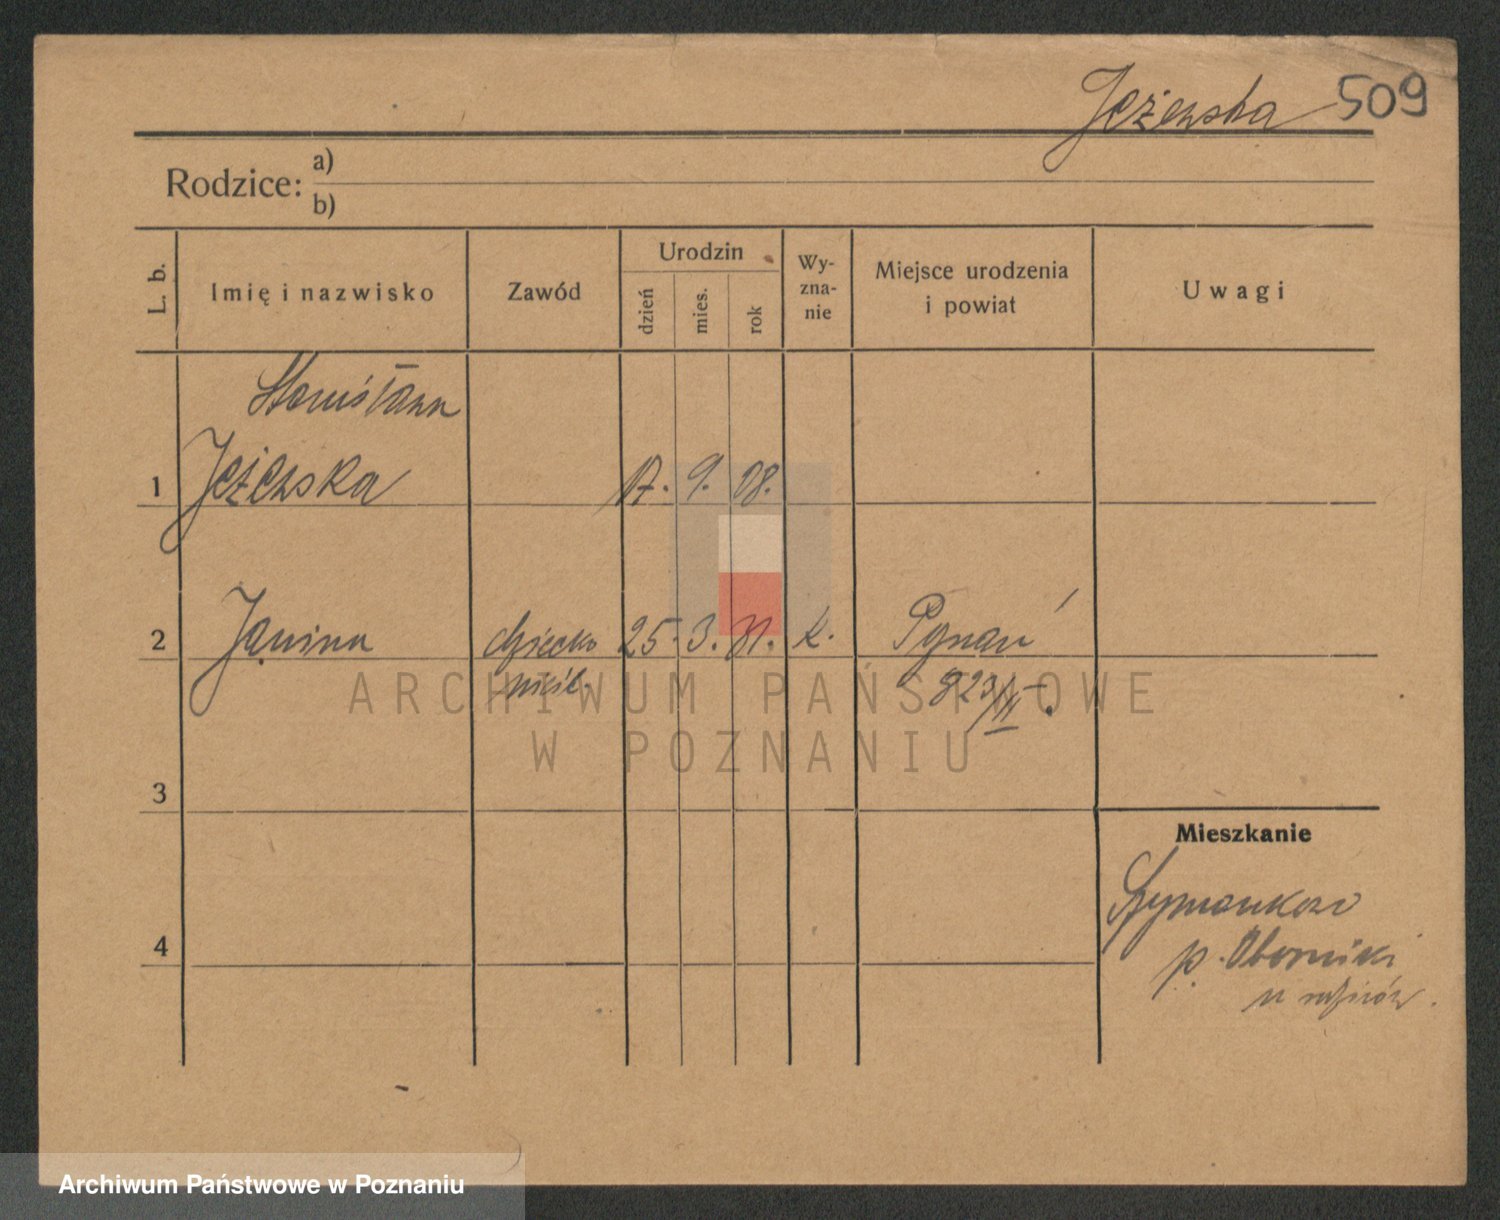 Jeżewska 509
Rodzice: a)
b)
L. b.
Imię i nazwisko
Zawód
Urodzin
dzień
mies.
rok
Wy-
zna-
nie
Miejsce urodzenia
i powiat
Uwagi
Stanisława
1 Jeżewska 17. 9. 08.
2 Janina dziecko 25. 3. 31. k. Poznań
nieśl. 823/III.
3
Mieszkanie
4
Szymankowo
p. Oborniki
u rodziców.
ARCHIWUM PAŃSTWOWE
W POZNANIU
Archiwum Państwowe w Poznaniu